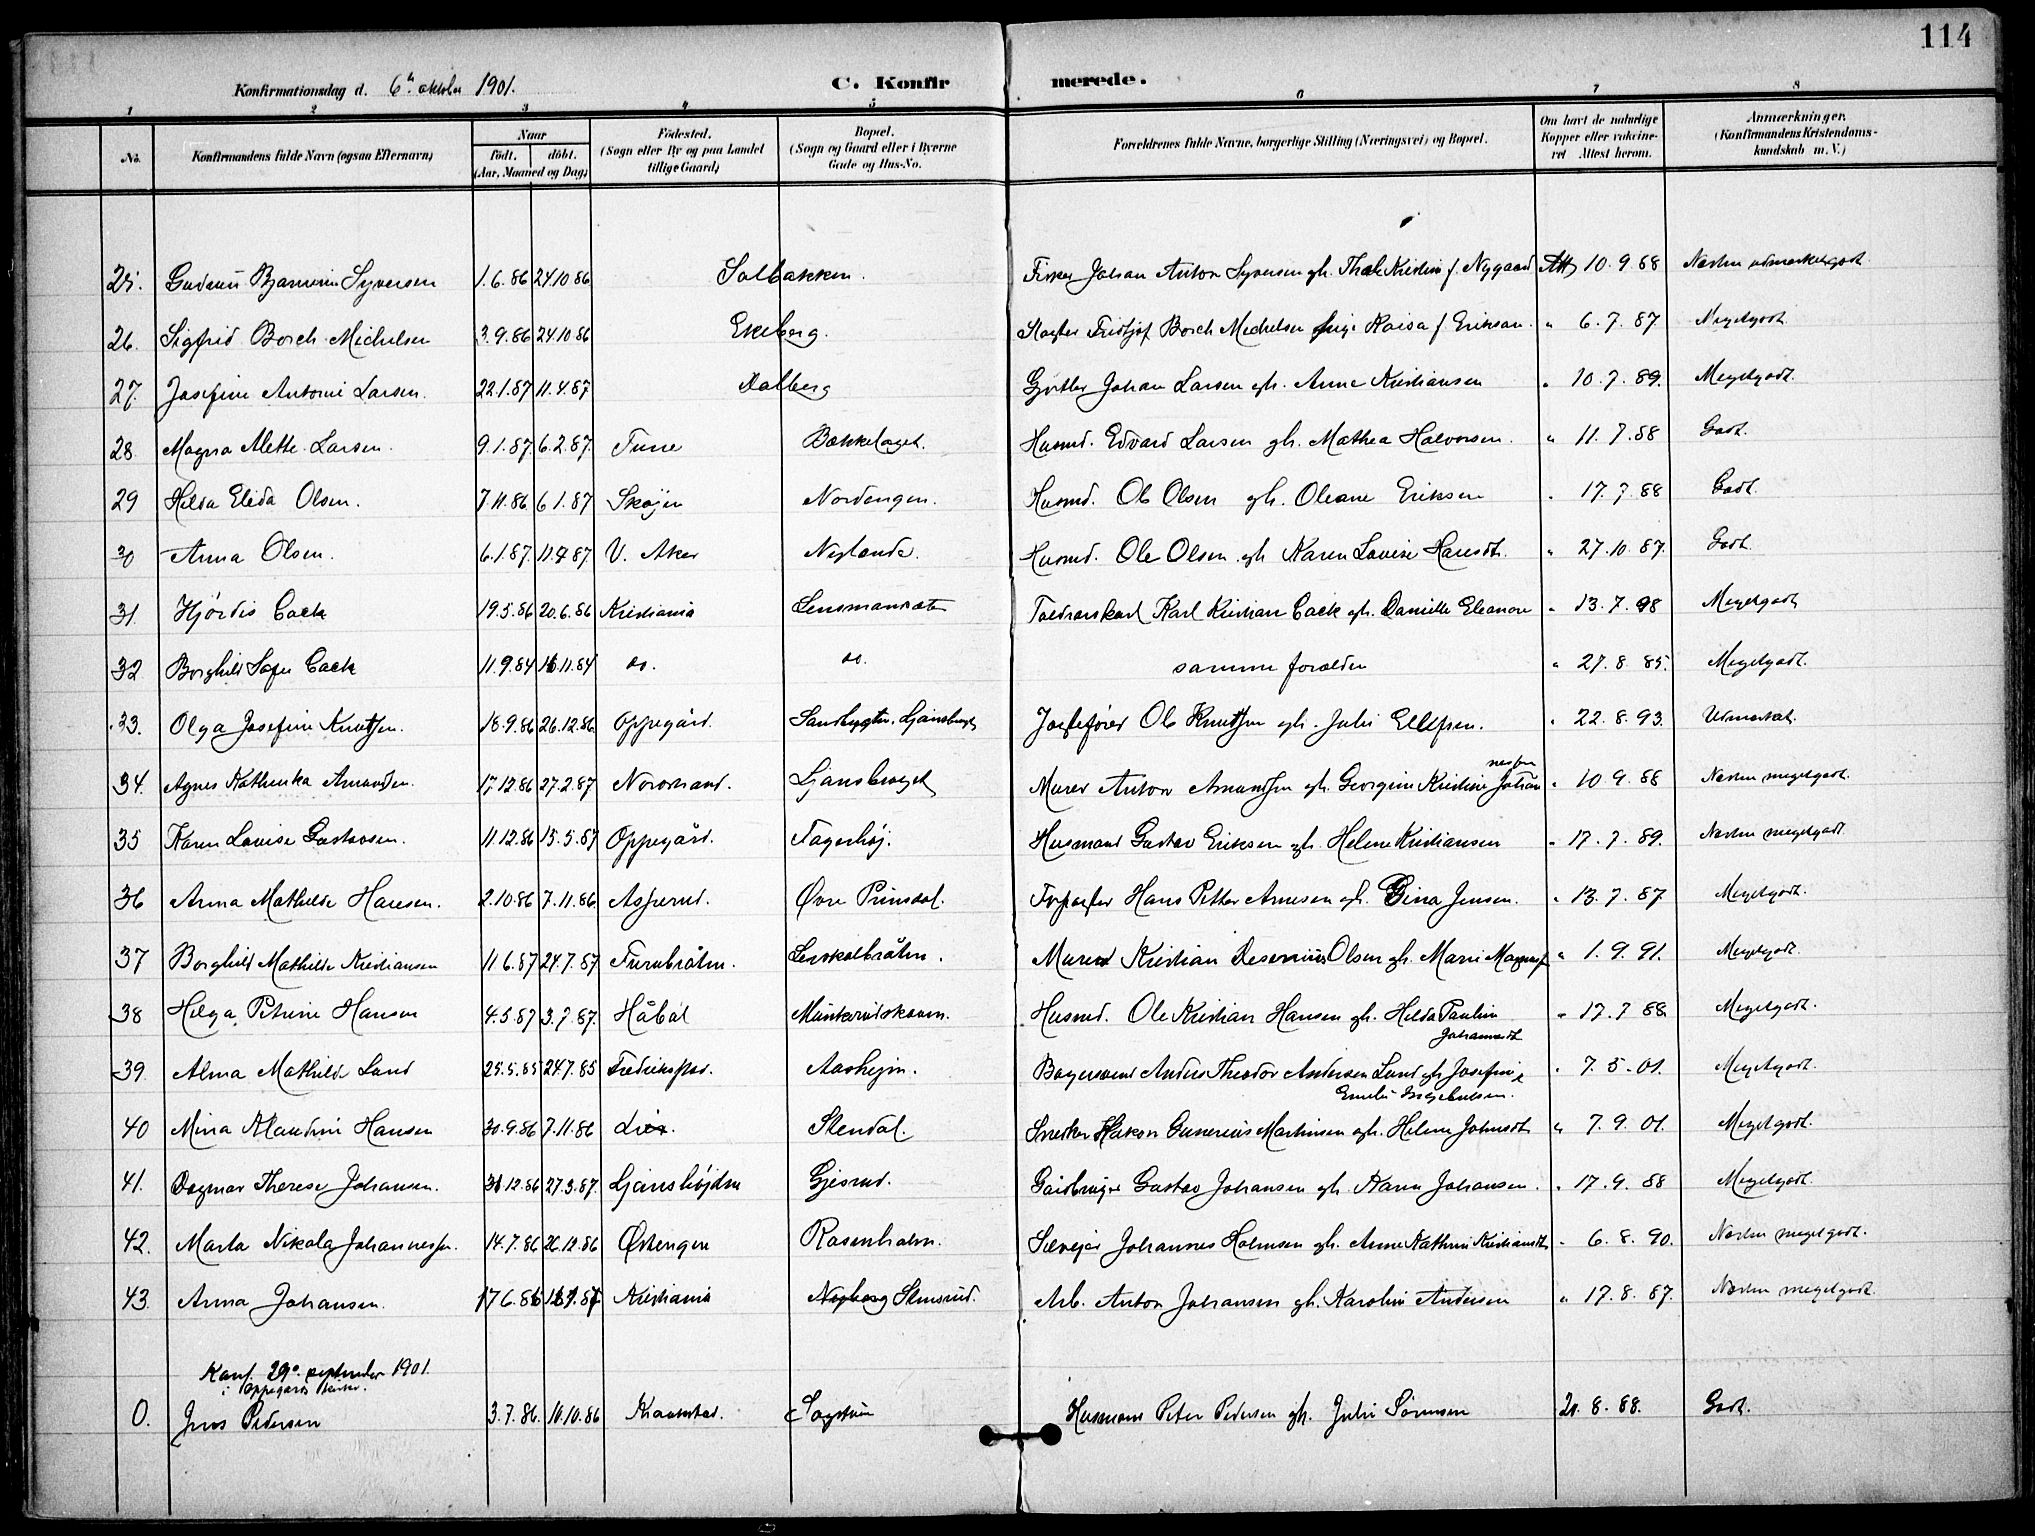 114
Konfirmationsdag d. 6te oktober 1901. C. Konfirmerede.
1 2 3 4 5 6 7 8
No. Konfirmandens fulde Navn (ogsaa Efternavn) Naar født. døbt. (Aar, Maaned og Dag) Fødested. (Sogn eller By og paa Landet tillige Gaard) Bopæl. (Sogn og Gaard eller i Byerne Gade og Hus-No. Forældrenes fulde Navne, borgerlige Stilling (Næringsvei) og Bopæl. Om havt de naturlige Kopper eller vakcineret Attest herom. Anmærkninger. (Konfirmandens Kristendomskundskab m. V.)
25. Gudrun Syversen 1.6.86 24.10.86 Solbakken. Johan Anton Syversen gh. Kristine f. Nygaard Att 10.9.88 Næsten udmærketgodt
26. Sigfrid Borch Michelsen 3.9.86 24.10.86 Ekeberg. Fridtjof Borch Michelsen Kaisa f. Erikson. " 6.7.87 Megetgodt.
27. Josefine Antonie Larsen. 22.1.87 11.4.87 Dalberg Gjørtler Johan Larsen gh. Anne Kristiansen " 10.7.89. Megetgodt.
28. Magna Alette Larsen. 9.1.87 6.2.87. Tune Bækkelaget. Husmd. Edvard Larsen gh. Mathea Halvorsen. " 11.7.88 Godt.
29 Hilda Elida Olsen. 7.11.86 6.1.87 Skøjen Nordengen. Husmd. Ole Olsen gh. Oleane Eriksen " 17.7.88 Godt.
30 Anna Olsen. 6.1.87. 11.4.87 V. Aker Nylænde. Husmd. Ole Olsen gh Karen Lovise Hansdt. " 27.10.87. Godt.
31. Hjørdis Cack 19.5.86 20.6.86 Kristiania Lensmansæter Karl Kristian Cack gh. Danielle Eleonore " 13.7.98 Megetgodt
32 Borghild Sofie Cack 11.9.84 16.11.84 do. do. samme forældre " 27.8.85. Megetgodt.
33. Olga Josefine Knutsen. 18.9.86 26.12.86. Oppegård. Ljansbruget Ole Knutsen gh. Julie Ellefsen. " 22.8.93. Udmærket.
34. Agnes Kathinka Amundsen. 17.12.86 27.2.87. Nordstrand. Ljansbruget Murer Anton Amundsen gh. Georgine Kristine Johannessen " 10.9.88 Næsten megetgodt.
35 Karen Lovise Gustavsen. 11.12.86 15.5.87 Oppegård. Fagerhøj. Husmand Gustav Eriksen gh. Helene Kristiansen " 17.7.89. Næsten megetgodt.
36 Anna Mathilde Hansen. 2.10.86 7.11.86 Asperud. Øvre Prinsdal. Forpagter Hans Petter Arnesen gh. Gina Jensen. " 13.7.87. Megetgodt.
37 Borghild Mathilde Kristiansen 11.6.87 24.7.87 Furubråten. Lerskalbråten. Murer Kristian Olsen gh. Marie " 1.9.91. Megetgodt.
38 Helga Petrine Hansen 4.5.87 3.7.87. Håbøl Munkerudskoven. Husmd. Ole Kristian Hansen gh. Hilda Pauline Johannesdt. " 17.7.88. Megetgodt.
39. Alma Mathilde Lund 25.5.85 24.7.85 Fredrikstad. Aasheim. Bagersvend Anders Theodor Andersen Lund gh. Josefine Emelie Ingebretsen. " 7.5.01. Megetgodt.
40 Mina Klaudine Hansen 30.9.86 7.11.86 Lier. Stendal. Snedker Håkon Gunerius Martinsen gh. Helene Johnsdt. " 7.9.01. Megetgodt.
41. Dagmar Therese Johansen. 31.12.86 27.3.87. Ljanshøjden Gjersrud. Gårdbruger Gustav Johansen gh. Karen Johansen. " 17.9.88 Megetgodt.
42. Marta Nikola Johannessen. 14.7.86 26.12.86 Østengen Rosenholm. Selvejer Johannes Holmsen gh. Anne Kathrine Kristiansdt. " 6.8.90. Næsten megetgodt.
43. Anna Johansen. 17.6.86 Kristiania Stensrud. Arb. Anton Johansen gh. Karoline Andersen " 17.8.87. Næsten megetgodt.
Konf. 29de september 1901.
i Oppegård kirke.
0. Jens Pedersen 3.7.86. 10.10.86 Sagstuen Husmand Peter Pedersen gh. Julie Sørensen 20.8.88. Godt.